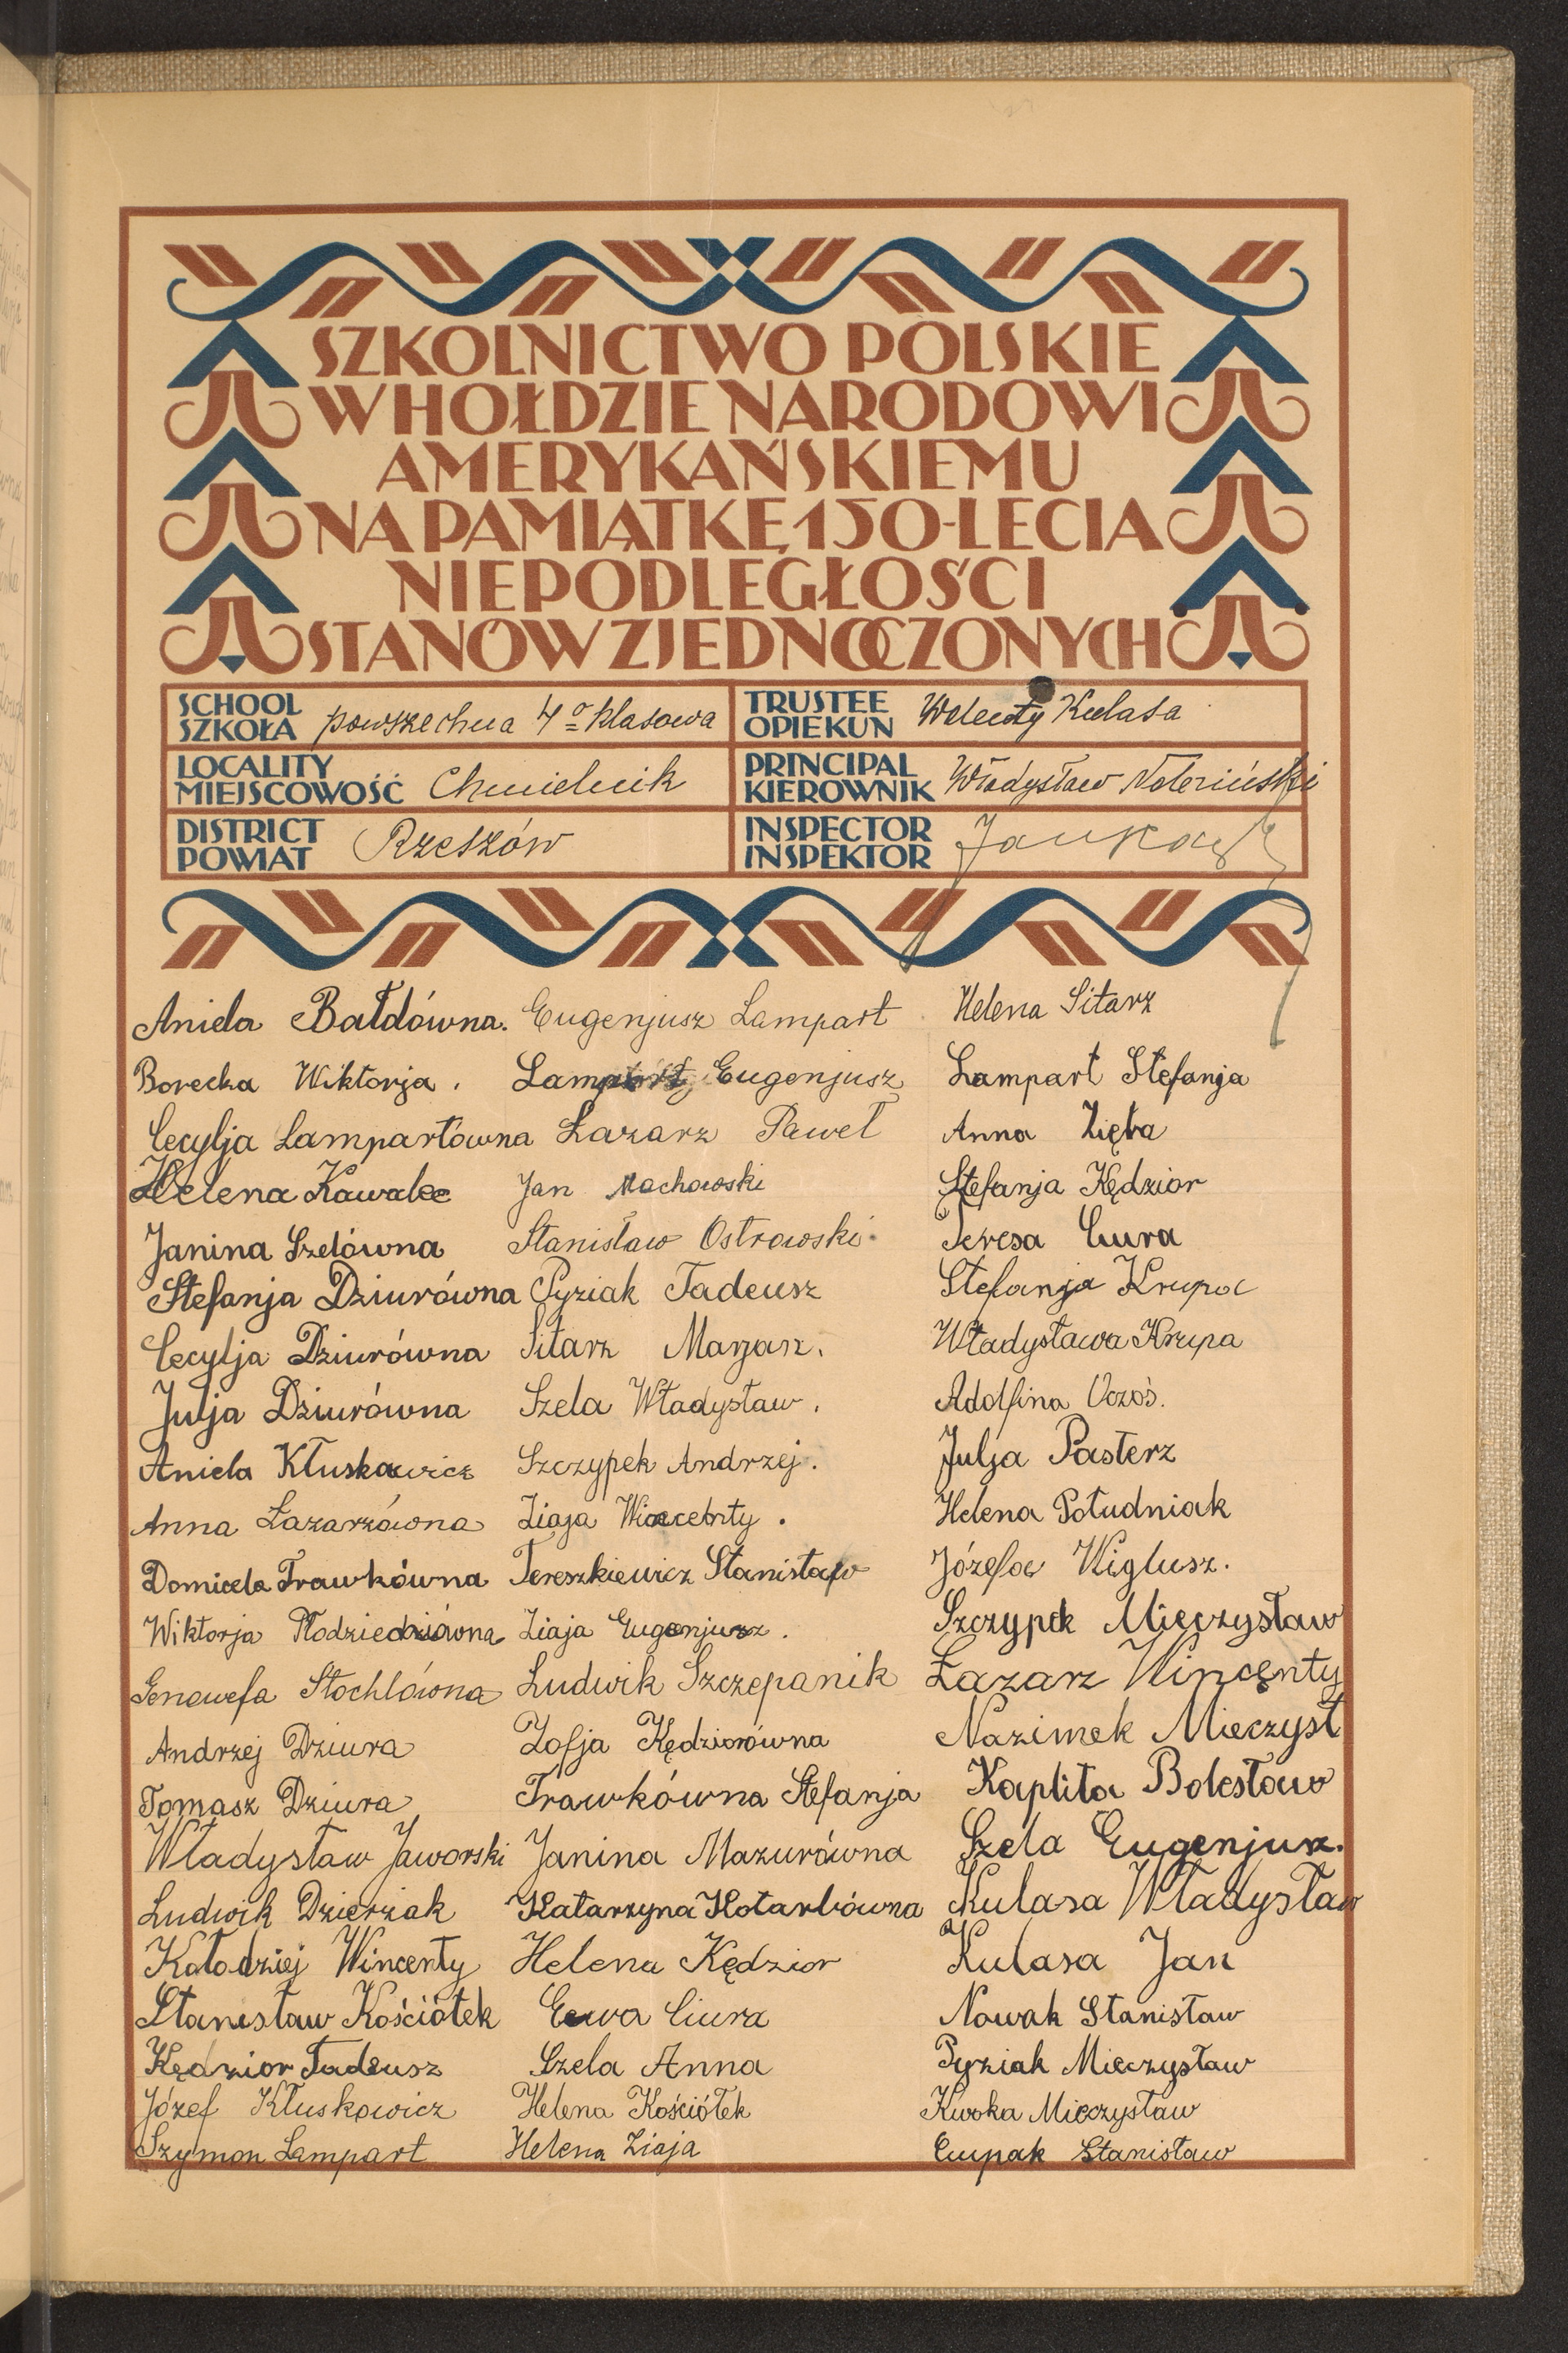 SZKOLNICTWO POLSKIE
W HOŁDZIE NARODOWI
AMERYKAŃSKIEMU
NA PAMIĄTKĘ 150-LECIA
NIEPODLEGŁOŚCI
STANÓW ZJEDNOCZONYCH
SCHOOL
SZKOŁA powszechna 4º klasowa
TRUSTEE
OPIEKUN Walenty Kulasa
LOCALITY
MIEJSCOWOŚĆ Chmielnik
PRINCIPAL
KIEROWNIK Władysław
DISTRICT
POWIAT Rzeszów
INSPECTOR
INSPEKTOR
Aniela Bałdówna.
Borecka Wiktorja.
Cecylja Lampartówna
Helena Kawalec
Janina Szelówna
Stefanja Dziurówna
Cecylja Dziurówna
Julja Dziurówna
Aniela Kłuskawicz
Anna Łazarzówna
Domicela Trawkówna
Wiktorja
Genowefa Stochlówna
Andrzej Dziura
Tomasz Dziura
Władysław Jaworski
Ludwik Dzierżak
Kołodziej Wincenty
Stanisław Kościółek
Kędzior Tadeusz
Józef Kłuskowicz
Szymon Lampart
Eugenjusz Lampart
Lampart Eugenjusz
Łazarz Paweł
Jan Machowski
Stanisław Ostrowski.
Pyziak Tadeusz
Sitarz Marjan.
Szela Władysław.
Szczypek Andrzej.
Ziaja Wincenty.
Tereszkiewicz Stanisław
Ziaja Eugenjusz.
Ludwik Szczepanik
Zofja Kędziorówna
Trawkówna Stefanja
Janina Mazurówna
Katarzyna Kotarbówna
Helena Kędzior
Ewa Ciura
Szela Anna
Helena Kościółek
Helena Ziaja
Helena Sitarz
Lampart Stefanja
Anna Zięba
Stefanja Kędzior
Teresa Ciura
Stefanja Krupa
Władysława Krupa
Adolfina Oczoś.
Julja Pasterz
Helena Południak
Józefa Wiglusz.
Szczypek Mieczysław
Łazarz Wincenty
Nazimek Mieczysł
Kaplita Bolesław
Szela Eugenjusz.
Kulasa Władysław
Kulasa Jan
Nowak Stanisław
Pyziak Mieczysław
Kwoka Mieczysław
Stanisław